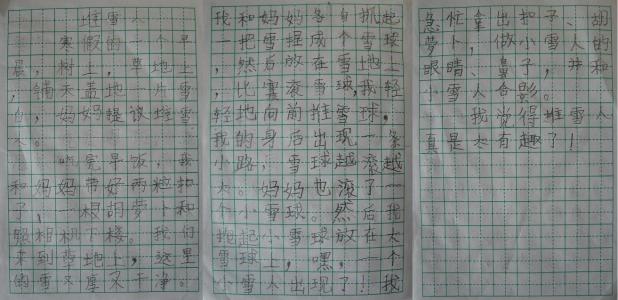 堆雪人
寒假的一个早
晨，树上，草地上
，铺天盖地一片雪
白，妈妈提议堆雪
人。
吃完早饭，我
和妈妈带好两粒扣
子、一根胡萝卜和
照相机下楼。我们
来到草地上，这里
的雪又厚又干净。
我和妈妈各自抓起
一把雪捏成个雪球
，然后放在雪地上
，比赛滚雪球，我轻
轻地向前推雪球，
我的身后出现一条
小路，雪球越滚越
大。妈妈也滚了一
个小雪球。然后我
抱起小雪球放在大
雪球上，嘿，一个
小雪人出现了！我
急忙拿出扣子、胡
萝卜，做小雪人的
眼睛、鼻子，并和
小雪人合影。
我觉得堆雪人
真是太有趣了！